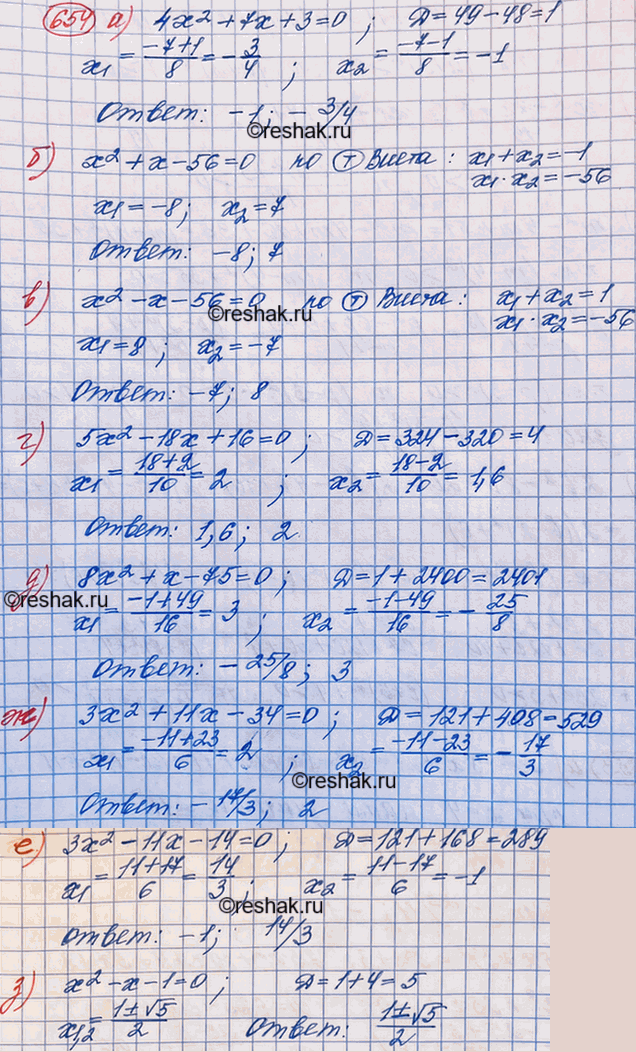 654 а) 4x² + 7x + 3 = 0 ; Д = 49 - 48 = 1
x₁ = (-7+1)/8 = -3/4 ; x₂ = (-7-1)/8 = -1
Ответ: -1; -3/4
©reshak.ru
б) x² + x - 56 = 0 по Т Виета : x₁ + x₂ = -1
x₁ · x₂ = -56
x₁ = -8; x₂ = 7
Ответ: -8; 7
в) x² - x - 56 = 0 по Т Виета : x₁ + x₂ = 1
©reshak.ru
x₁ · x₂ = -56
x₁ = 8 ; x₂ = -7
Ответ: -7; 8
г) 5x² - 18x + 16 = 0 ; Д = 324 - 320 = 4
x₁ = (18+2)/10 = 2 ; x₂ = (18-2)/10 = 1,6
Ответ: 1,6; 2
д) 8x² + x - 75 = 0 ; Д = 1 + 2400 = 2401
©reshak.ru
x₁ = (-1+49)/16 = 3 ; x₂ = (-1-49)/16 = -25/8
Ответ: -25/8; 3
ж) 3x² + 11x - 34 = 0 ; Д = 121 + 408 = 529
x₁ = (-11+23)/6 = 2 ; x₂ = (-11-23)/6 = -17/3
©reshak.ru
Ответ: -17/3; 2
е) 3x² - 11x - 14 = 0 ; Д = 121 + 168 = 289
x₁ = (11+17)/6 = 14/3 ; x₂ = (11-17)/6 = -1
©reshak.ru
Ответ: -1; 14/3
з) x² - x - 1 = 0 ; Д = 1 + 4 = 5
x₁,₂ = (1±√5)/2 Ответ: (1±√5)/2